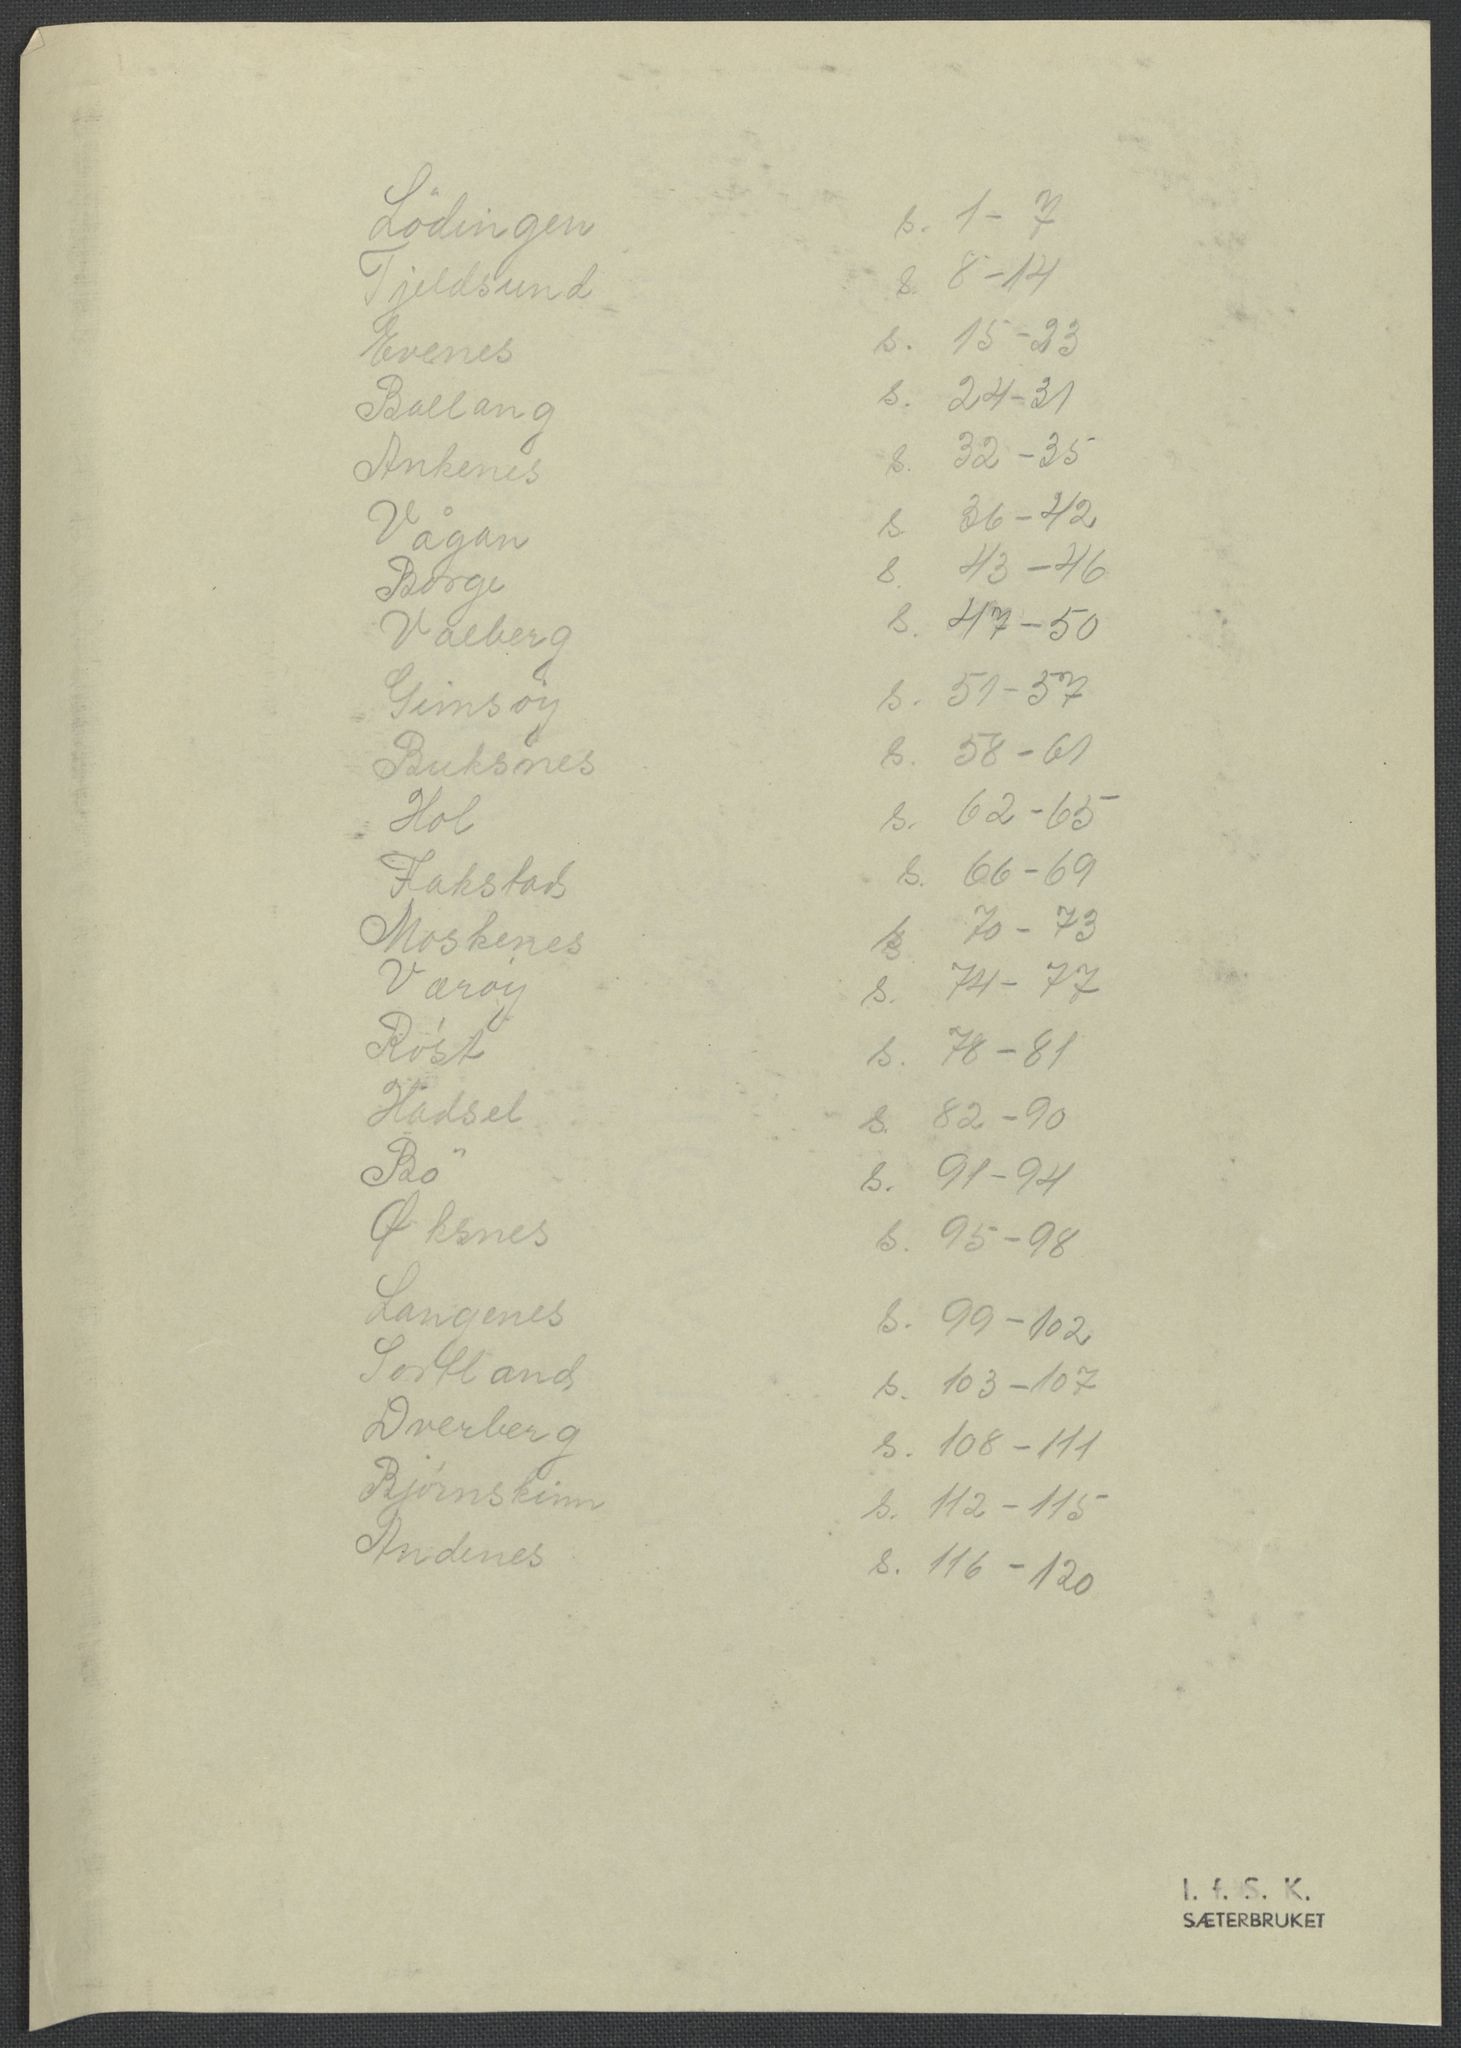 Lödingen s. 1 - 7
Tjeldsund s. 8 - 14
Evenes s. 15 - 23
Ballang s. 24 - 31
Ankenes s. 32 - 35
Vågan s. 36 - 42
Borge s. 43 - 46
Valberg s. 47 - 50
Gimsöy s. 51 - 57
Buksnes s. 58 - 61
Hol s. 62 - 65
Flakstad s. 66 - 69
Moskenes s. 70 - 73
Væröy s. 74 - 77
Röst s. 78 - 81
Hadsel s. 82 - 90
Bö s. 91 - 94
Øksnes s. 95 - 98
Langenes s. 99 - 102
Sortland s. 103 - 107
Dverberg s. 108 - 111
Björnskinn s. 112 - 115
Andenes s. 116 - 120
I. f. S. K.
SÆTERBRUKET